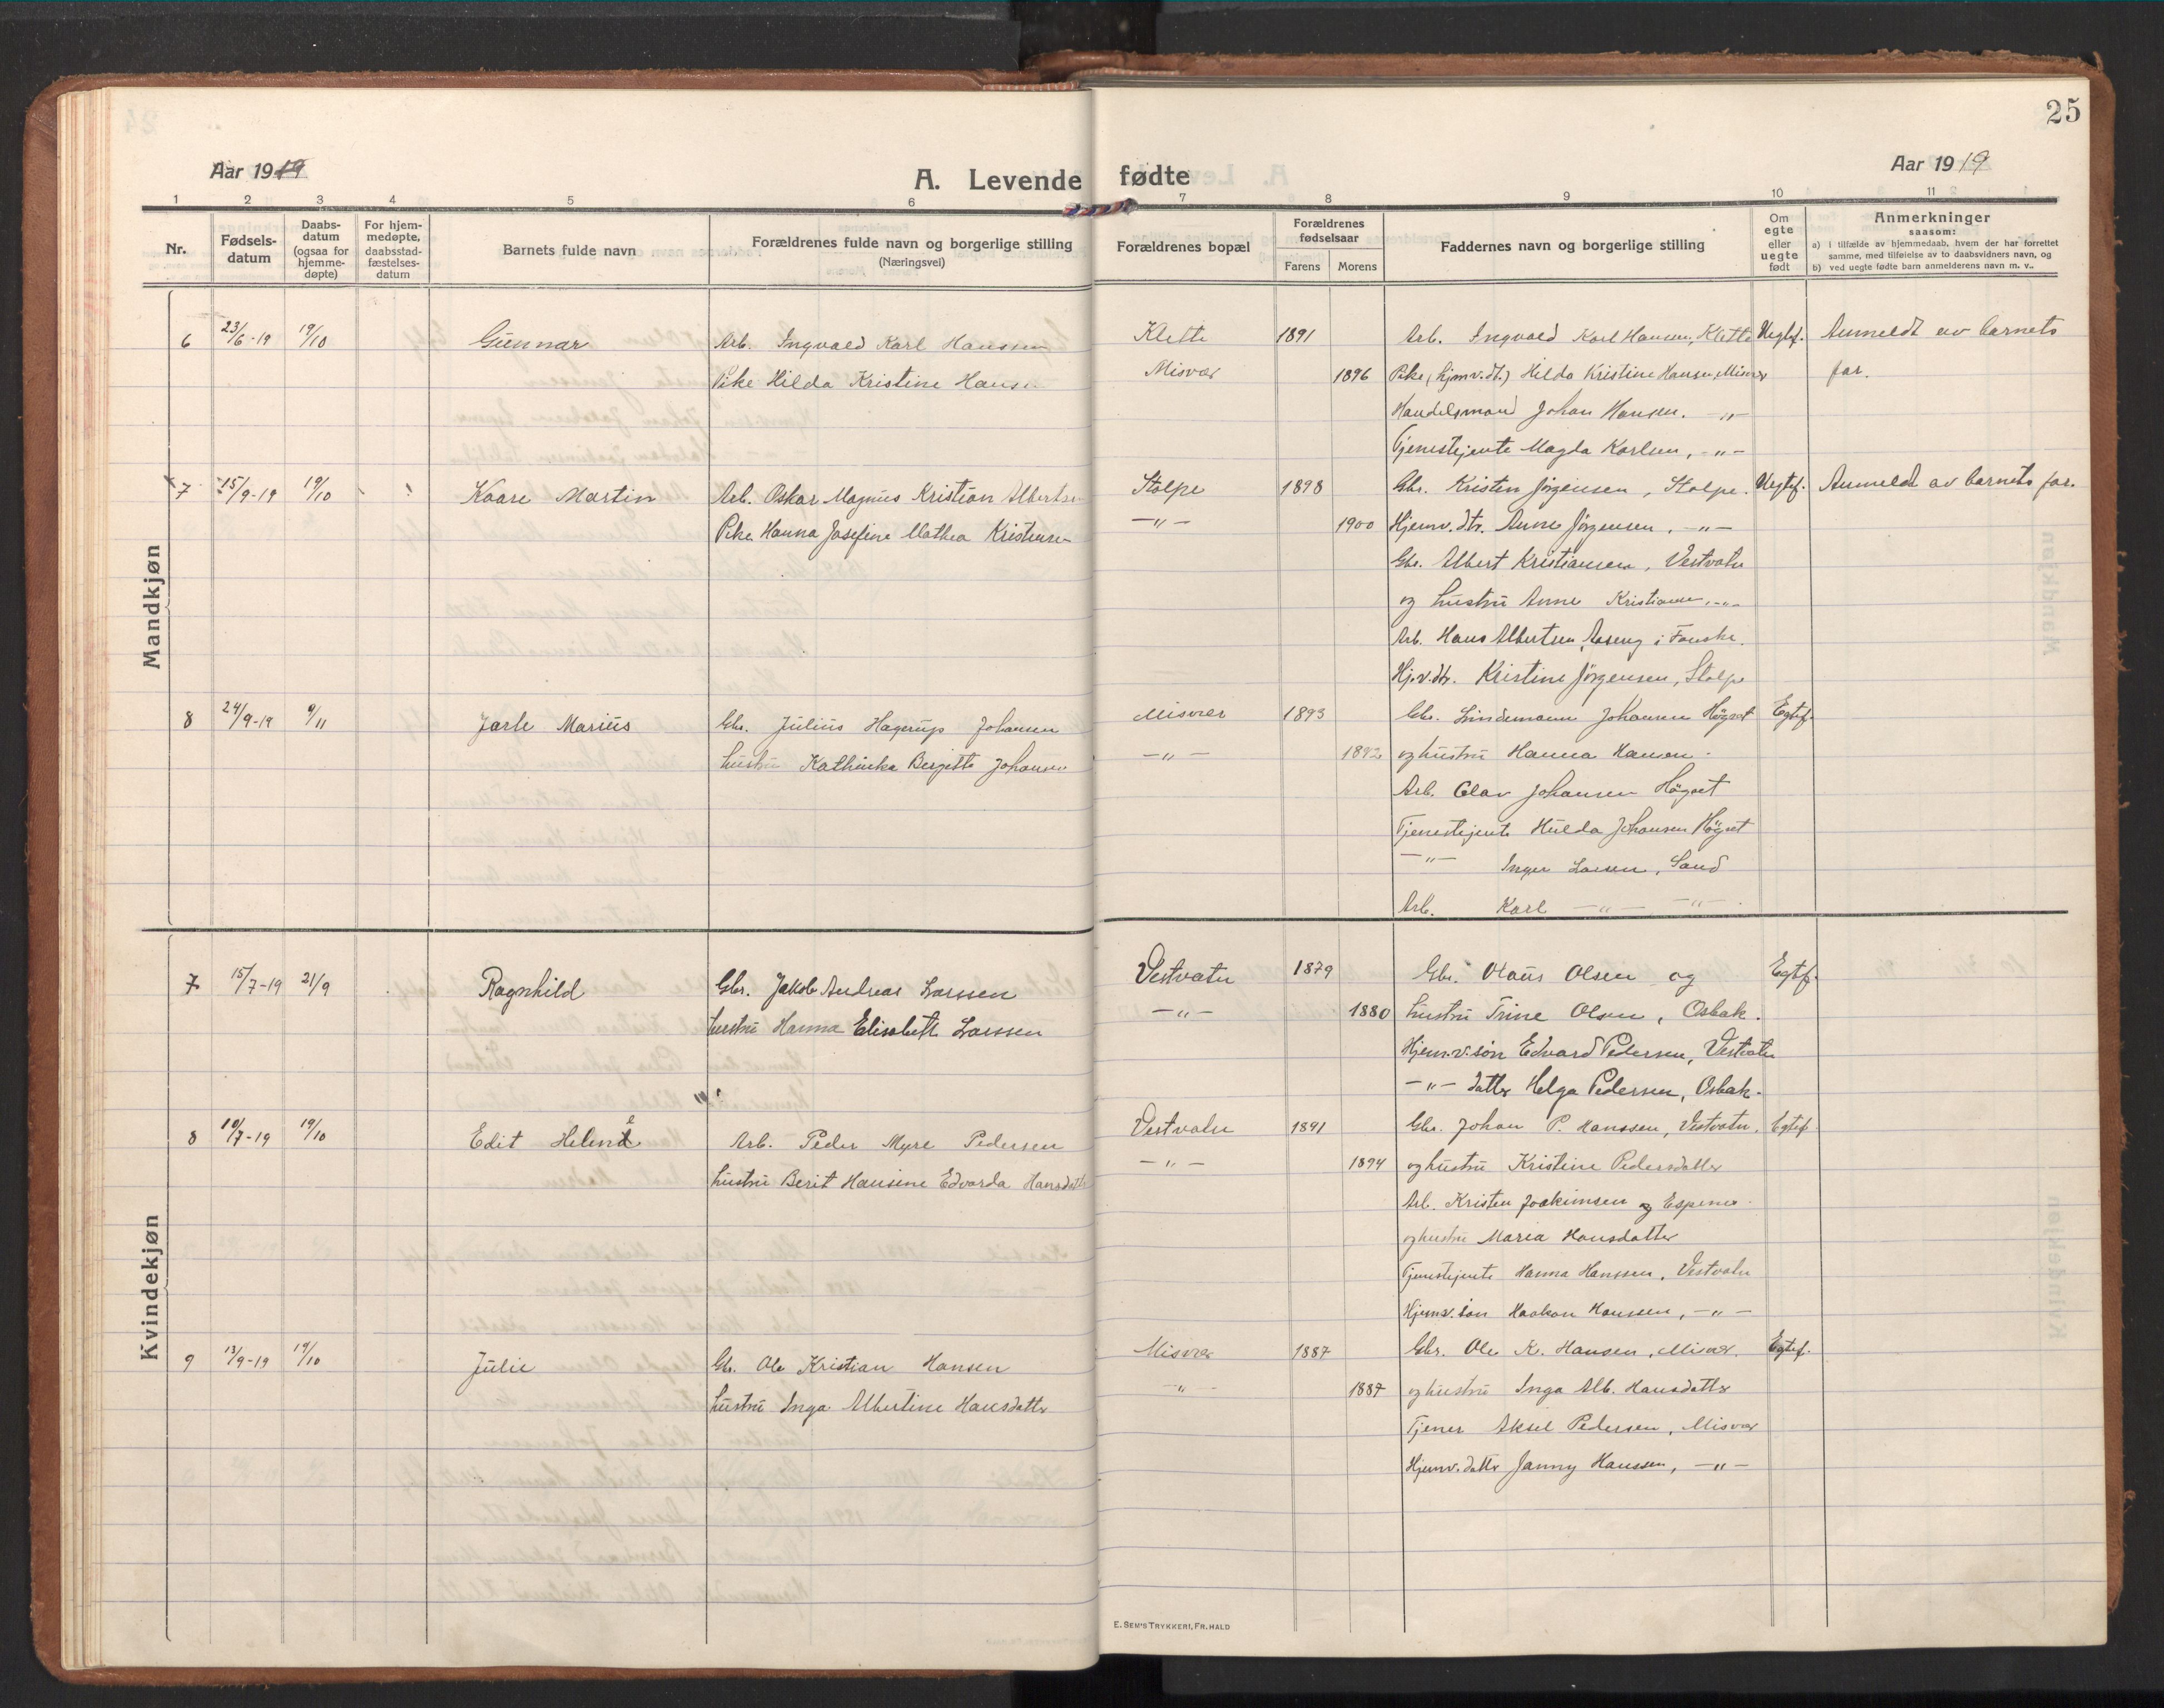 25
Aar 1919
A. Levende fødte
Aar 1919
1 2 3 4 5 6 7 8 9 10 11
Nr.
Fødsels-
datum
Daabs-
datum
(ogsaa for
hjemme-
døpte)
For hjem-
medøpte,
daabsstad-
fæstelses-
datum
Barnets fulde navn
Forældrenes fulde navn og borgerlige stilling
(Næringsvei)
Forældrenes bopæl
Forældrenes
fødselsaar
Farens Morens
Faddernes navn og borgerlige stilling
Om
egte
eller
uegte
født
Anmerkninger
saasom:
a) i tilfælde av hjemmedaab, hvem der har forrettet
samme, med tilføielse av to daabsvidners navn, og
b) ved uegte fødte barn anmelderens navn m. v..
Mandkjøn
6 23/6-19 19/10 Gunnar Arb. Ingvald Karl Hanssen Klette 1891 Arb. Ingvald Karl Hansen, Klette Uegtef. Anmeldt av barnets
Pike Hilda Kristine Hans Misvær 1896 Pike (hjemv. dt.) Hilda Kristine Hansen, Misvær far.
Handelsmand Johan Hansen. -"-
Tjenestejente Magda Karlsen, -"-
7 15/9-19 19/10 Kaare Martin Arb. Oskar Magnus Kristian Albertsen Stolpe 1898 Gbr. Kristen Jörgensen, Stolpe. Uegtef. Anmeldt av barnets far.
Pike Hanna Josefine Mathea Kristensen -"- 1900 Hjemv. dtr. Anne Jörgensen. -"-
Gbr. Albert Kristiansen, Vestvatn
og hustru Anne Kristiansen, -"-
Arb. Hans Albertsen, Aseng i Fauske.
Hj.v.dtr. Kristine Jörgensen, Stolpe
8 24/9-19 9/11 Jarle Marius Gbr. Julius Hagerup Johansen Misvær 1893 Gbr. Lindemann Johansen Högset Egtef.
hustru Kathinka Bergitte Johansen -"- 1892 og hustru Hanna Hansen.
Arb. Olav Johansen Högset
Tjenestejente Hulda Johansen Högset
-"- Inger Larsen, Sand
Arb. Karl -"- -"-
Kvindekjøn
7 15/7-19 21/9 Ragnhild Gbr. Jakob Andreas Larssen Vestvatn 1879 Gbr. Olaus Olsen og Egtef.
hustru Hanna Elisabeth Larssen -"- 1880 hustru Trine Olsen, Osbak.
Hjem.v.sön Edvard Pedersen, Vestvatn
-"- datter Helga Pedersen, Osbak.
8 10/7-19 19/10 Edit Helene Arb. Peder Myre Pedersen Vestvatn 1891 Gbr. Johan P. Hanssen, Vestvatn. Egtef.
hustru Berit Hansine Edvarda Hansdatter -"- 1894 og hustru Kristine Pedersdatter
Arb. Kristen Joakimsen og Espenes.
og hustru Maria Hansdatter
Tjenestejente Hanna Hanssen, Vestvatn
Hjemv. sön Haakon Hanssen, -"-
9 13/9-19 19/10 Julie Gb. Ole Kristian Hansen Misvær 1887 Gbr. Ole K. Hansen, Misvær. Egtef.
hustru Inga Albertine Hansdatter -"- 1887 og hustru Inga Alb. Hansdatter
Tjener Aksel Pedersen, Misvær
Hjemv. datter Janny Hanssen, -"-
E. SEM'S TRYKKERI, FR. HALD